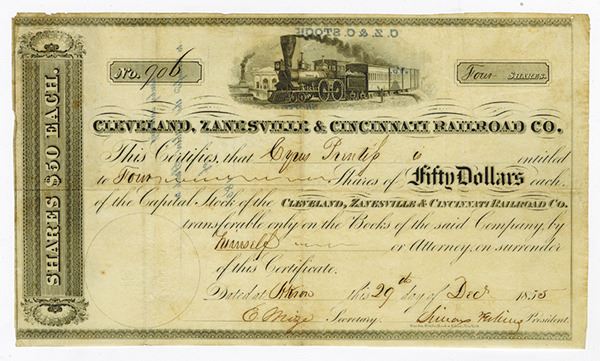 SHARES $50 EACH.
C. Z. & C. STOCK
No. 906
Four SHARES.
CLEVELAND, ZANESVILLE & CINCINNATI RAILROAD CO.
This Certifies, that Cyrus Prentiss is entitled
to Four Shares of Fifty Dollars each,
of the Capital Stock of the CLEVELAND, ZANESVILLE & CINCINNATI RAILROAD CO.
transferable only on the Books of the said Company, by
himself or Attorney, on surrender
of this Certificate.
Dated at Akron this 29th day of Dec 1855
E. Mize Secretary. President.